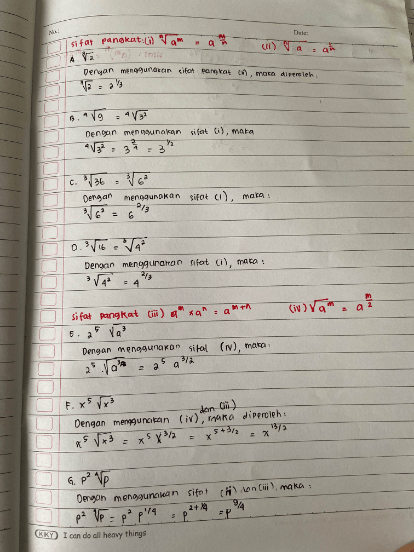 No.
Date:
Sifat pangkat: (i) ⁿ√aᵐ = a^(m/n) (ii) ⁿ√a = a^(1/n)
A. ³√2
Dengan menggunakan sifat pangkat (ii), maka diperoleh:
³√2 = 2^(1/3)
B. ⁴√9 = ⁴√3²
Dengan menggunakan sifat (i), maka
⁴√3² = 3^(2/4) = 3^(1/2)
C. ³√36 = ³√6²
Dengan menggunakan sifat (i), maka:
³√6² = 6^(2/3)
D. ³√16 = ³√4²
Dengan menggunakan sifat (i), maka:
³√4² = 4^(2/3)
Sifat pangkat (iii) aᵐ × aⁿ = aᵐ⁺ⁿ (iv) √aᵐ = a^(m/2)
E. 2⁵ √a³
Dengan menggunakan sifat (iv), maka:
2⁵ . = 2⁵ a^(3/2)
F. x⁵ √x³
Dengan menggunakan (iv) dan (iii), maka diperoleh:
x⁵ √x³ = x⁵ x^(3/2) = x^(5+3/2) = x^(13/2)
G. p² ⁴√p
Dengan menggunakan sifat (ii) dan (iii), maka:
p² ⁴√p = p² p^(1/4) = p^(2+1/4) = p^(9/4)
KKY I can do all heavy things